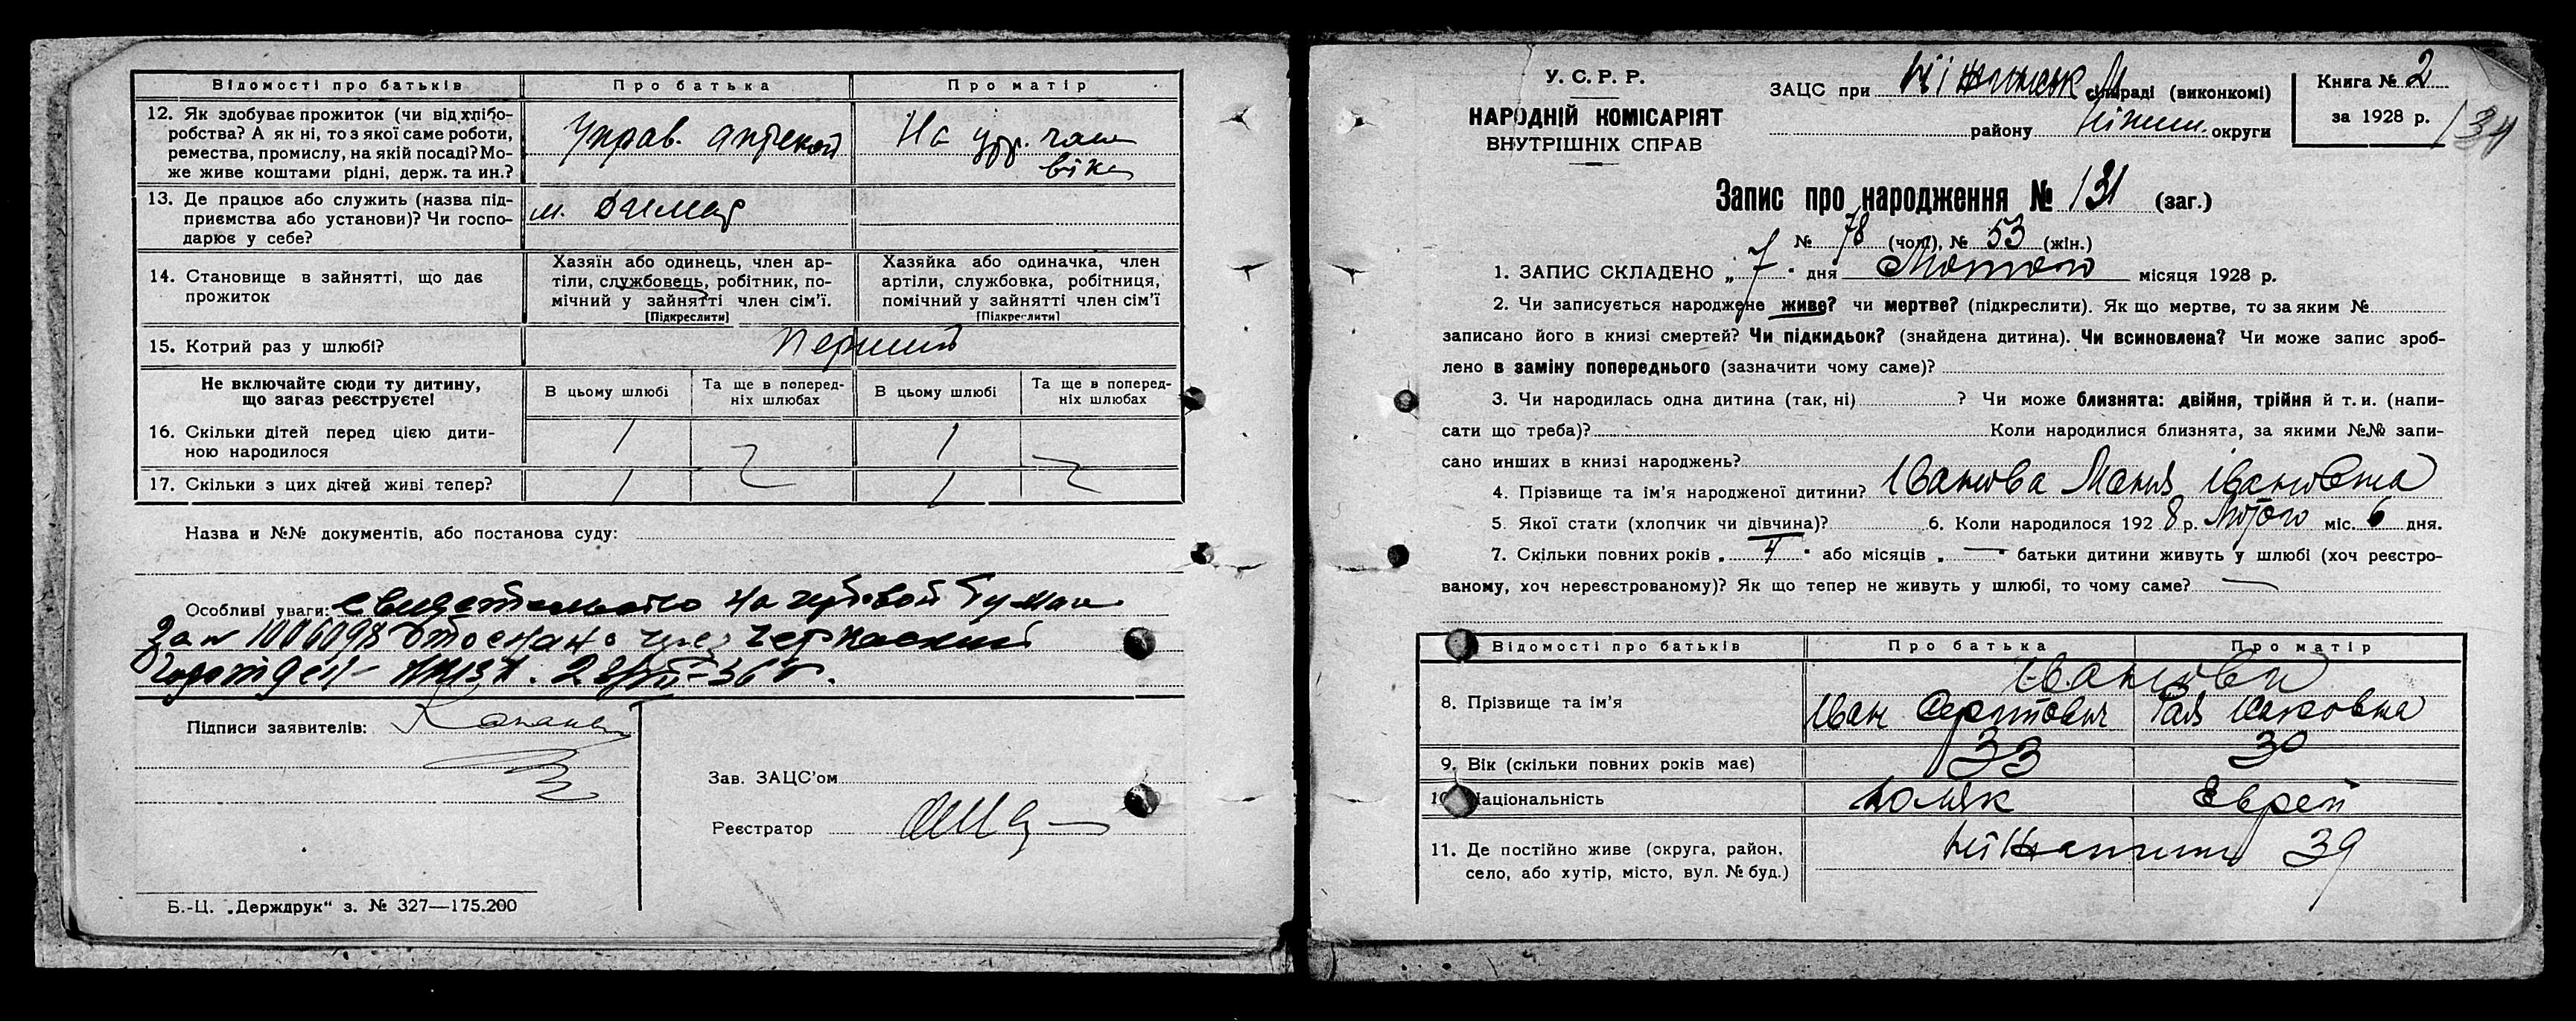 Відомості про батьків
Про батька
Про матір
12. Як здобуває прожиток (чи від хлібо-
робства? А як ні, то з якої саме роботи,
ремества, промислу, на якій посаді? Мо-
же живе коштами рідні, держ. та ин.?
Управ. аптекой
На
13. Де працює або служить (назва під-
приємства або установи)? Чи госпо-
дарює у себе?
м.
14. Становище в зайнятті, що дає
прожиток
Хазяїн або одинець, член ар-
тіли, службовець, робітник, по-
мічний у зайнятті член сім'ї.
[Підкреслити]
Хазяйка або одиначка, член
артіли, службовка, робітниця,
помічний у зайнятті член сім'ї
[Підкреслити]
15. Котрий раз у шлюбі?
Перший
Не включайте сюди ту дитину,
що загаз реєструєте!
В цьому шлюбі
Та ще в поперед-
ніх шлюбах
В цьому шлюбі
Та ще в поперед-
ніх шлюбах
16. Скільки дітей перед цією дити-
ною народилося
1
1
17. Скільки з цих дітей живі тепер?
1
1
Назва и №№ документів, або постанова суду:
Особливі уваги: свидетельство на гербовой бумаге
за № 1006098 отослано через Черкасский
горотдел НКВД. 2
Підписи заявителів:
Зав. ЗАЦС'ом
Реєстратор
Б.-Ц. „Держдрук“ з. № 327—175.200
У. С. Р. Р.
НАРОДНІЙ КОМІСАРІЯТ
ВНУТРІШНІХ СПРАВ
ЗАЦС при Ніжинськ М сільраді (виконкомі)
району Ніжин. округи
Книга № 2
за 1928 р.
134
Запис про народження № 131 (заг.)
№ 78 (чол.), № 53 (жін.)
1. ЗАПИС СКЛАДЕНО „ 7 “ дня Лютого місяця 1928 р.
2. Чи записується народжене живе? чи мертве? (підкреслити). Як що мертве, то за яким №
записано його в книзі смертей? Чи підкидьок? (знайдена дитина). Чи всиновлена? Чи може запис зроб-
лено в заміну попереднього (зазначити чому саме)?
3. Чи народилась одна дитина (так, ні) ? Чи може близнята: двійня, трійня й т. и. (напи-
сати що треба)? Коли народилися близнята, за якими №№ запи-
сано инших в книзі народжень?
4. Прізвище та ім'я народженої дитини? Іванова Майя Івановна
5. Якої стати (хлопчик чи дівчина)? 6. Коли народилося 192 8 р. Лютого міс. 6 дня.
7. Скільки повних років „ 4 “ або місяців „ — “ батьки дитини живуть у шлюбі (хоч реєстро-
ваному, хоч нереєстрованому)? Як що тепер не живуть у шлюбі, то чому саме? —
Відомості про батьків
Про батька
Про матір
8. Прізвище та ім'я
Іванови
Іван Сергійович
Рая Ісаковна
9. Вік (скільки повних років має)
33
30
10. Національність
Поляк
Єврей
11. Де постійно живе (округа, район,
село, або хутір, місто, вул. № буд.)
39